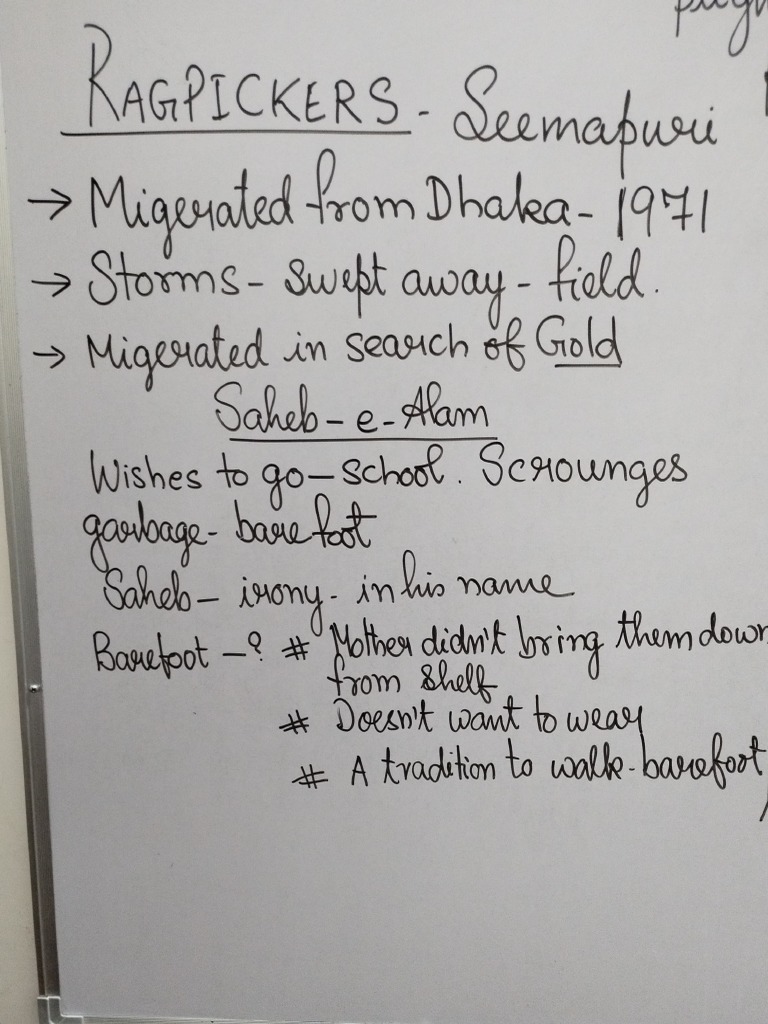 RAGPICKERS - Seemapuri
→ Migerated from Dhaka - 1971
→ Storms - swept away - field.
→ Migerated in search of Gold
Saheb - e - Alam
Wishes to go - school. Scrounges
garbage - barefoot
Saheb - irony - in his name
Barefoot - ? # Mother didn't bring them down
from shelf
# Doesn't want to wear
# A tradition to walk - barefoot